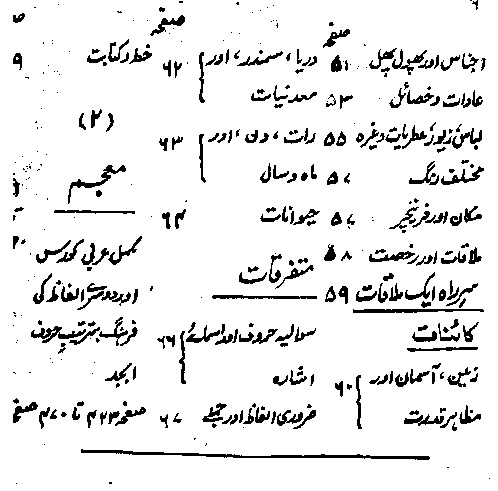 صفحہ
اجناس اور پھول پھل ۵۱
عادات و خصائل ۵۳
لباس، زیور، عطریات وغیرہ ۵۵
مختلف رنگ ۵۷
مکان اور فرنیچر ۵۷
ملاقات اور رخصت ۵۸
سرِ راہ ایک ملاقات ۵۹
کائنات
زمین، آسمان اور
مظاہر قدرت ۶۰
صفحہ
دریا، سمندر، اور
معدنیات ۶۲
رات، دن، اور
ماہ و سال ۶۳
حیوانات ۶۴
متفرقات
سوالیہ حروف اور اسمائے
اشارہ ۶۶
ضروری الفاظ اور جملے ۶۷
خط و کتابت
(۲)
معجم
مکمل عربی کورس
اور دوسرے الفاظ کی
فرہنگ بترتیبِ حروف
ابجد
صفحہ ۴۲۳ تا ۴۷۰ صفحہ